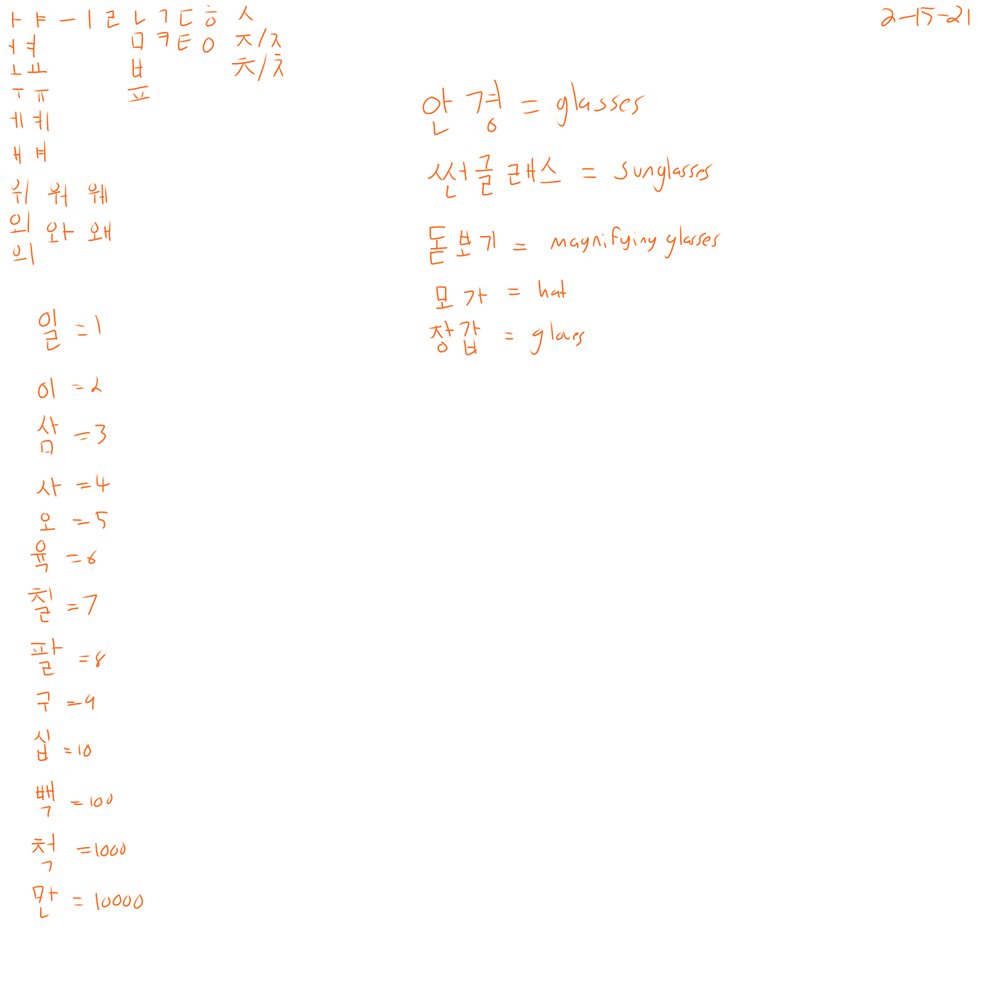 2-15-21
ㅏ ㅑ ㅡ ㅣ ㄹ ㄴ ㄱ ㄷ ㅎ ㅅ
ㅓ ㅕ ㅁ ㅋ ㅌ ㅇ ㅈ/ㅈ
ㅗ ㅛ ㅂ ㅊ/ㅊ
ㅜ ㅠ ㅍ
ㅔ ㅖ
ㅐ ㅒ
위 워 웨
외 와 왜
의
안경 = glasses
썬글래스 = sunglasses
돋보기 = magnifying glasses
모가 = hat
장갑 = gloves
일 = 1
이 = 2
삼 = 3
사 = 4
오 = 5
육 = 6
칠 = 7
팔 = 8
구 = 9
십 = 10
백 = 100
척 = 1000
만 = 10000